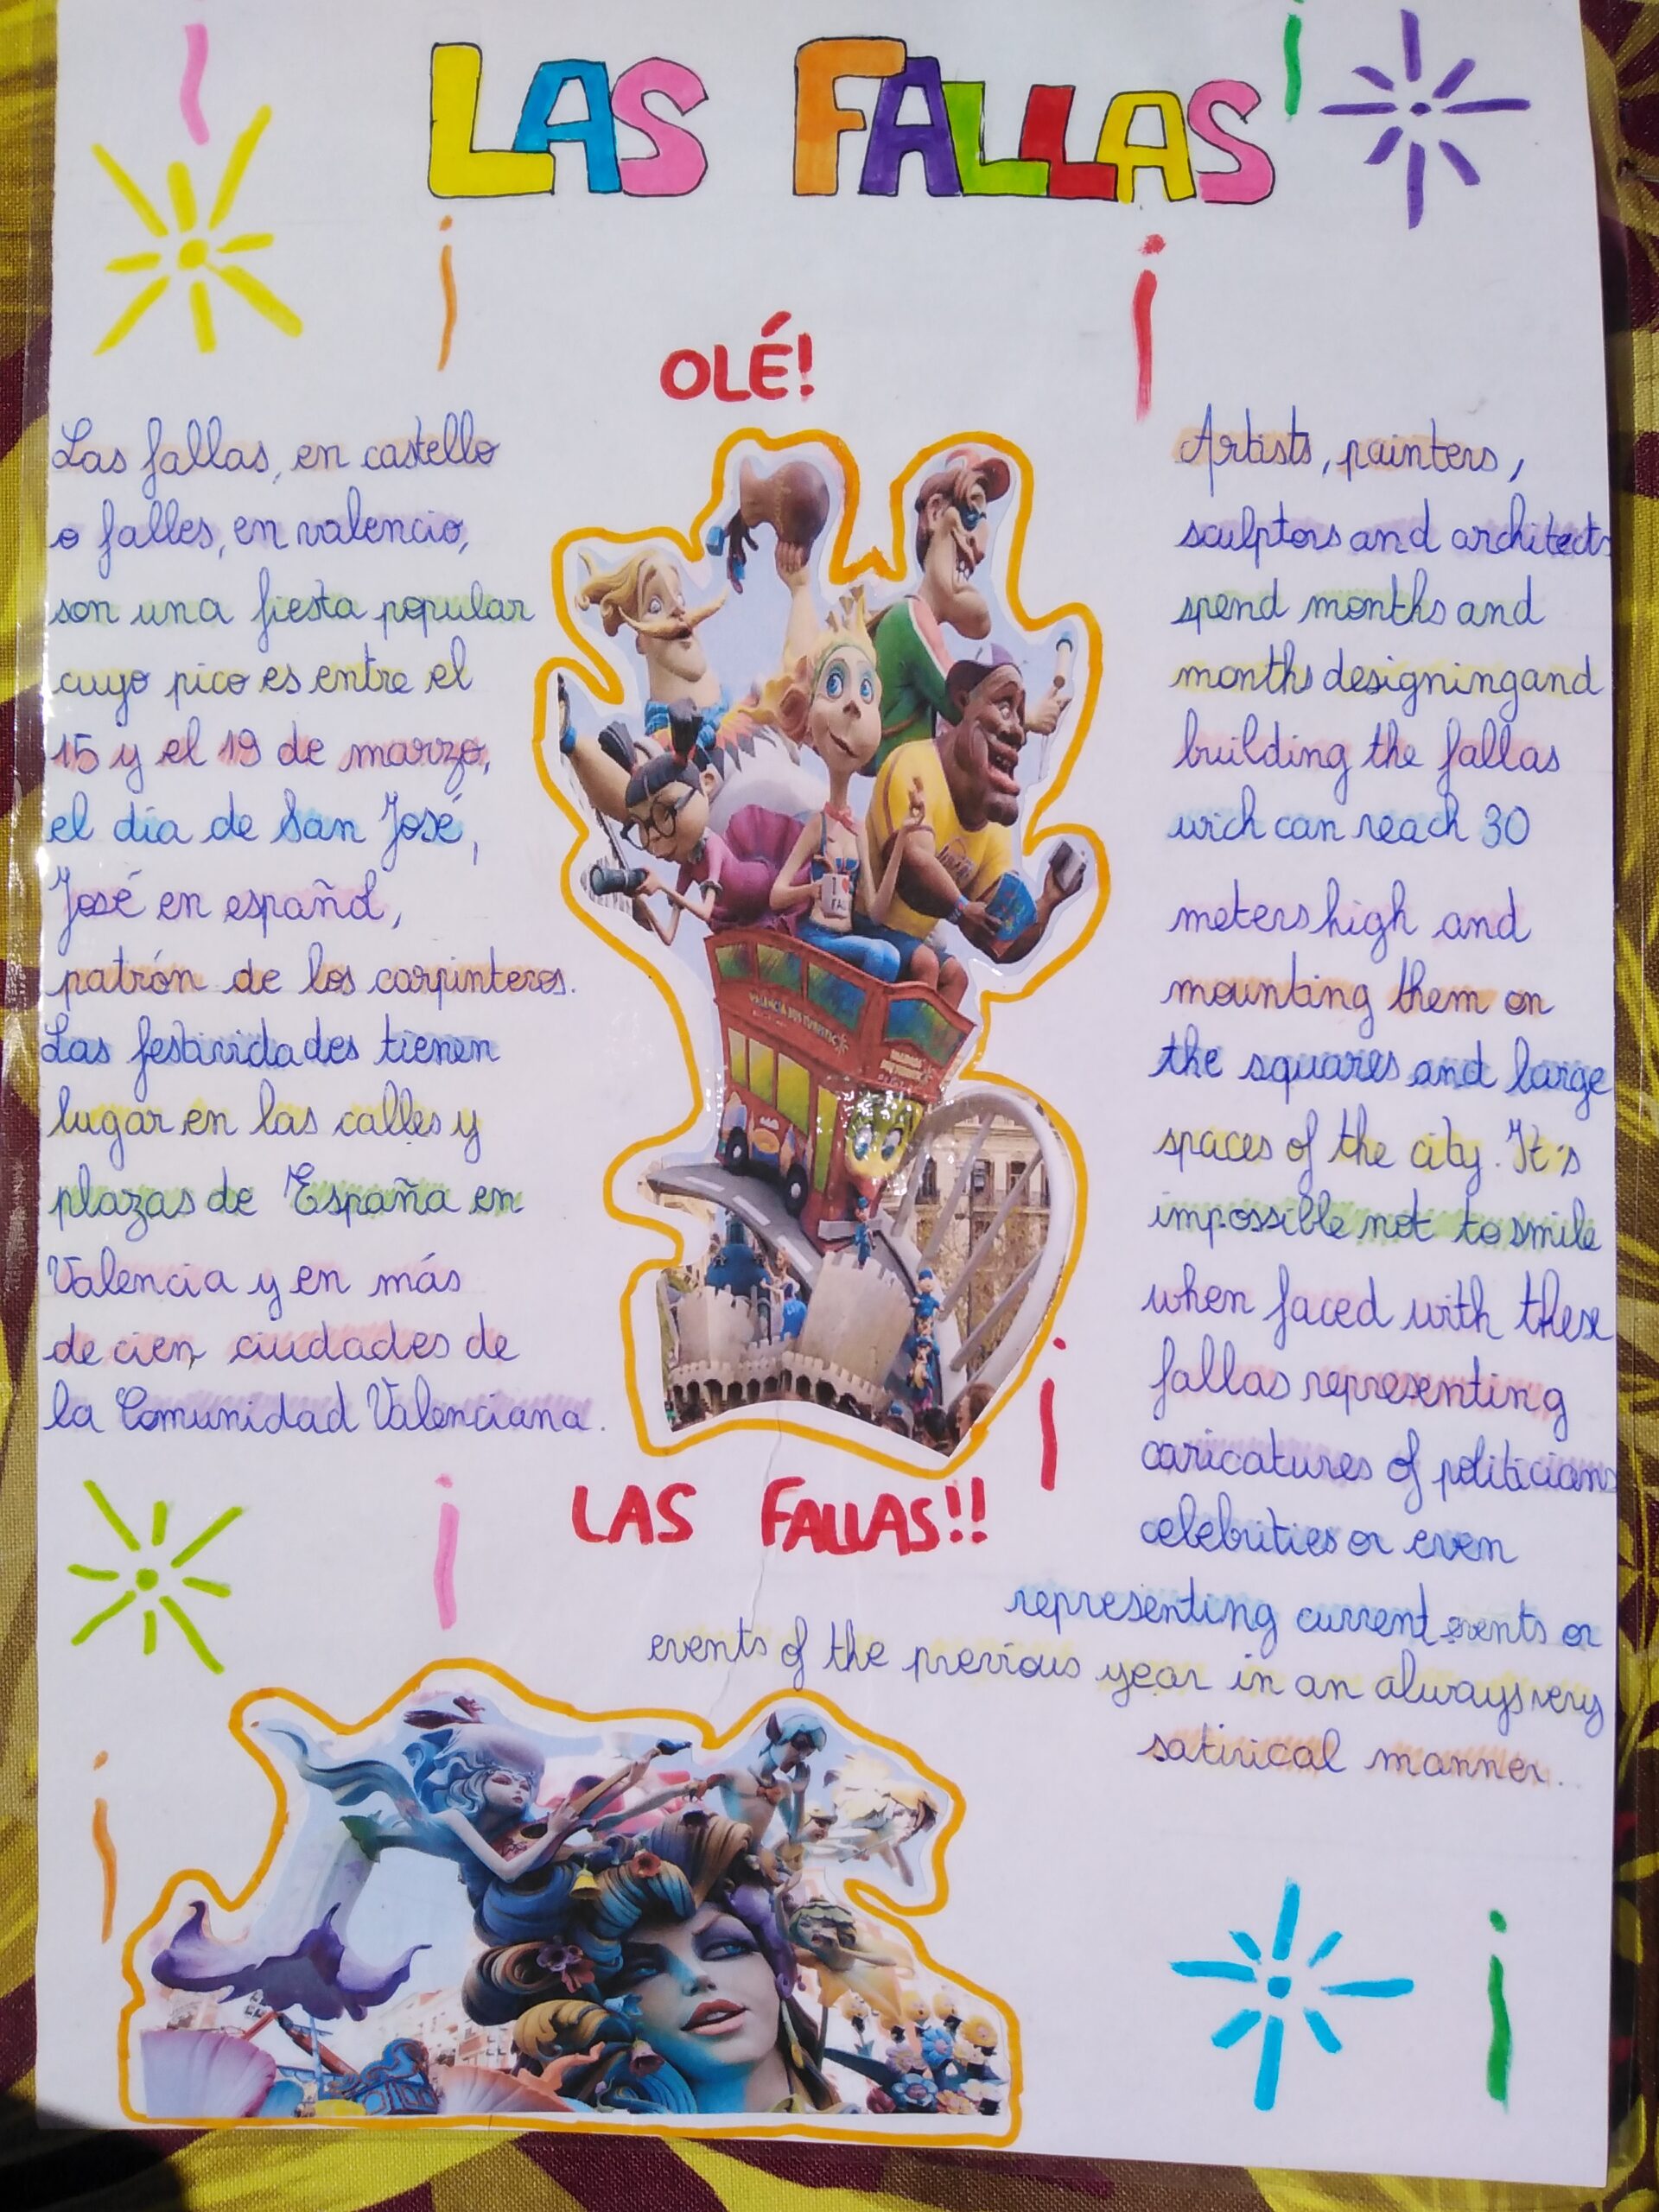 LAS FALLAS
OLÉ!
Las fallas, en castello
o falles, en valencio,
son una fiesta popular
cuyo pico es entre el
15 y el 19 de marzo,
el día de San José,
José en español,
patrón de los carpinteros.
Las festividades tienen
lugar en las calles y
plazas de España en
Valencia y en más
de cien ciudades de
la Comunidad Valenciana.
VALENCIA BUS TURISTIC
LAS FALLAS!!
Artists, painters,
sculptors and architects
spend months and
months designing and
building the fallas
wich can reach 30
meters high and
mounting them on
the squares and large
spaces of the city. It's
impossible not to smile
when faced with these
fallas representing
caricatures of politicians
celebrities or even
representing current events or
events of the previous year in an always very
satirical manner.